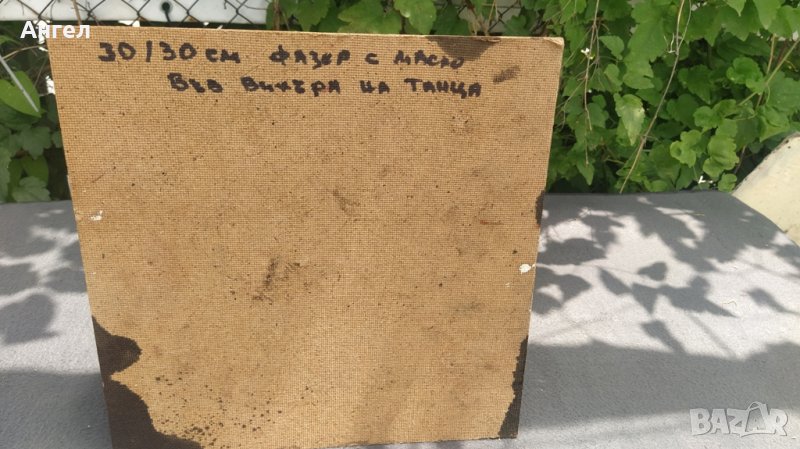 Ангел
30/30 см фазер с масло
Във вихъра на танца
BAZAR